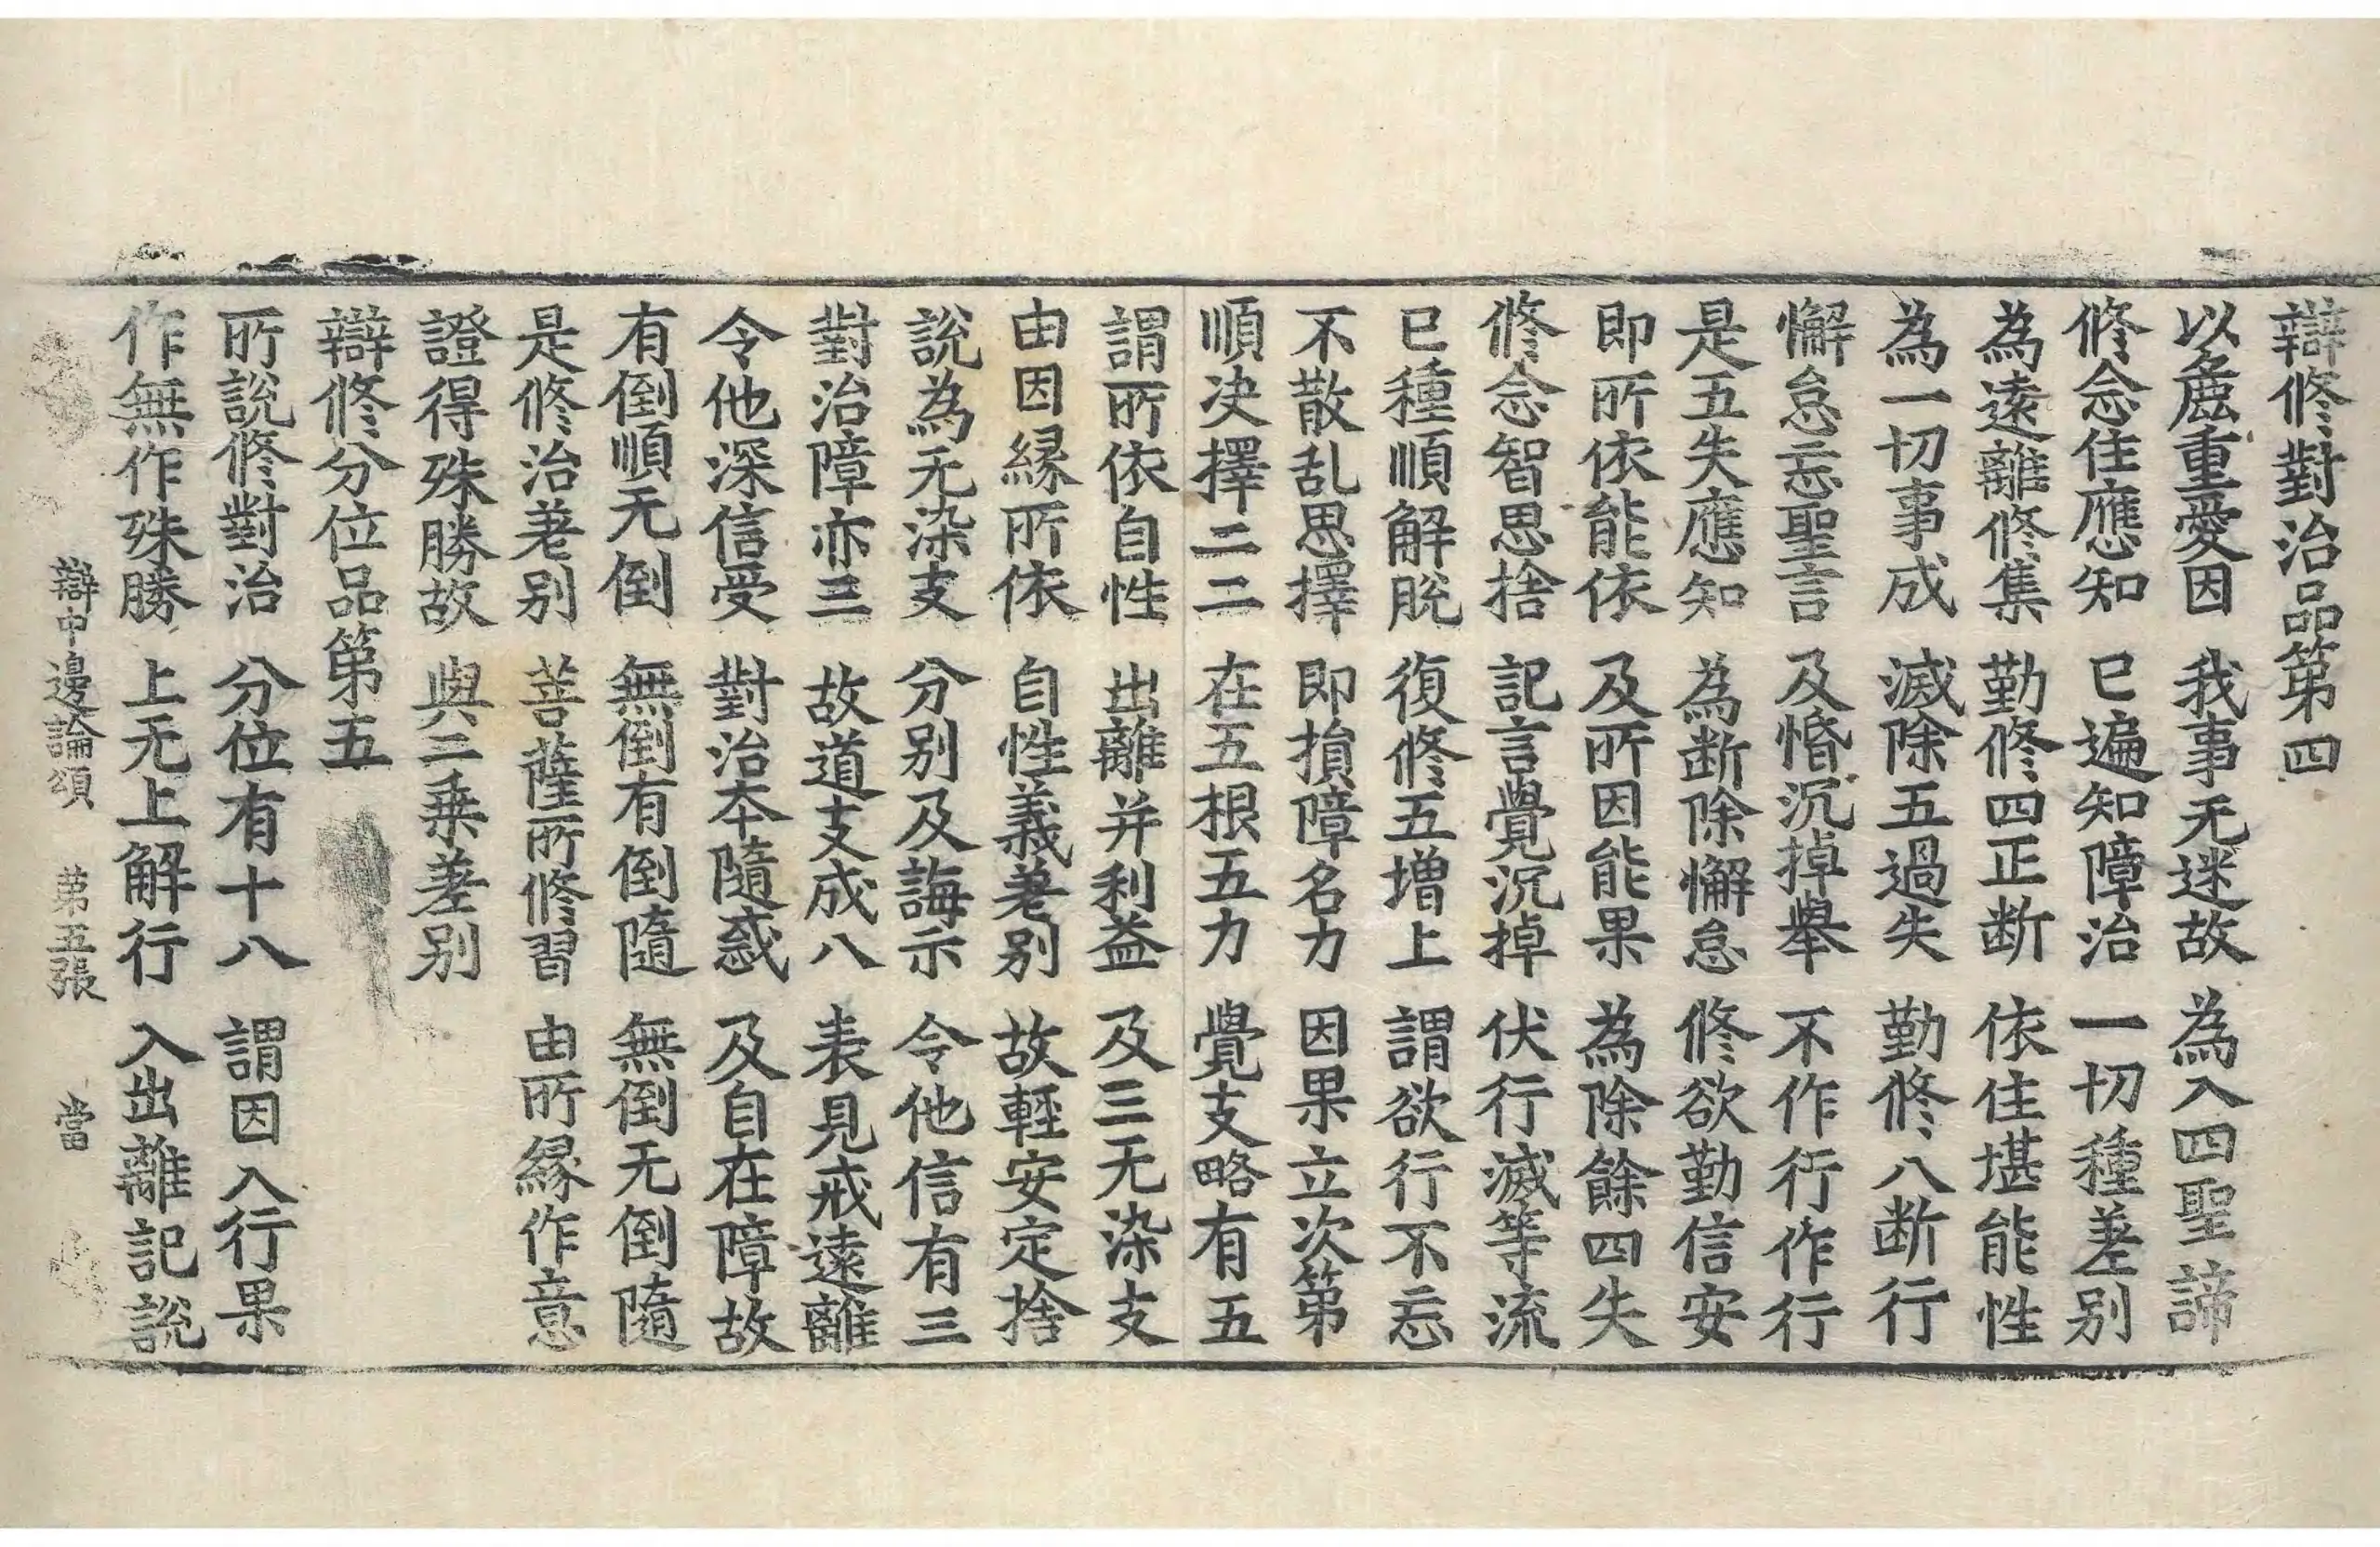 辯修對治品第四
以麁重愛因 我事无迷故 為入四聖諦
修念住應知 已遍知障治 一切種差别
為遠離修集 勤修四正断 依住堪能性
為一切事成 滅除五過失 勤修八断行
懈怠忘聖言 及惛沉掉舉 不作行作行
是五失應知 為断除懈怠 修欲勤信安
即所依能依 及所因能果 為除餘四失
修念智思捨 記言覺沉掉 伏行滅等流
已種順解脫 復修五增上 謂欲行不忘
不散乱思擇 即損障名力 因果立次第
順决擇二二 在五根五力 覺支略有五
謂所依自性 出離并利益 及三无染支
由因緣所依 自性義差别 故輕安定捨
說為无染支 分别及誨示 令他信有三
對治障亦三 故道支成八 表見戒遠離
令他深信受 對治本隨惑 及自在障故
有倒順无倒 無倒有倒隨 無倒无倒隨
是修治差别 菩薩所修習 由所緣作意
證得殊勝故 與二乗差别
辯修分位品第五
所說修對治 分位有十八 謂因入行果
作無作殊勝 上无上解行 入出離記說
辯中邊論頌 第五張 當